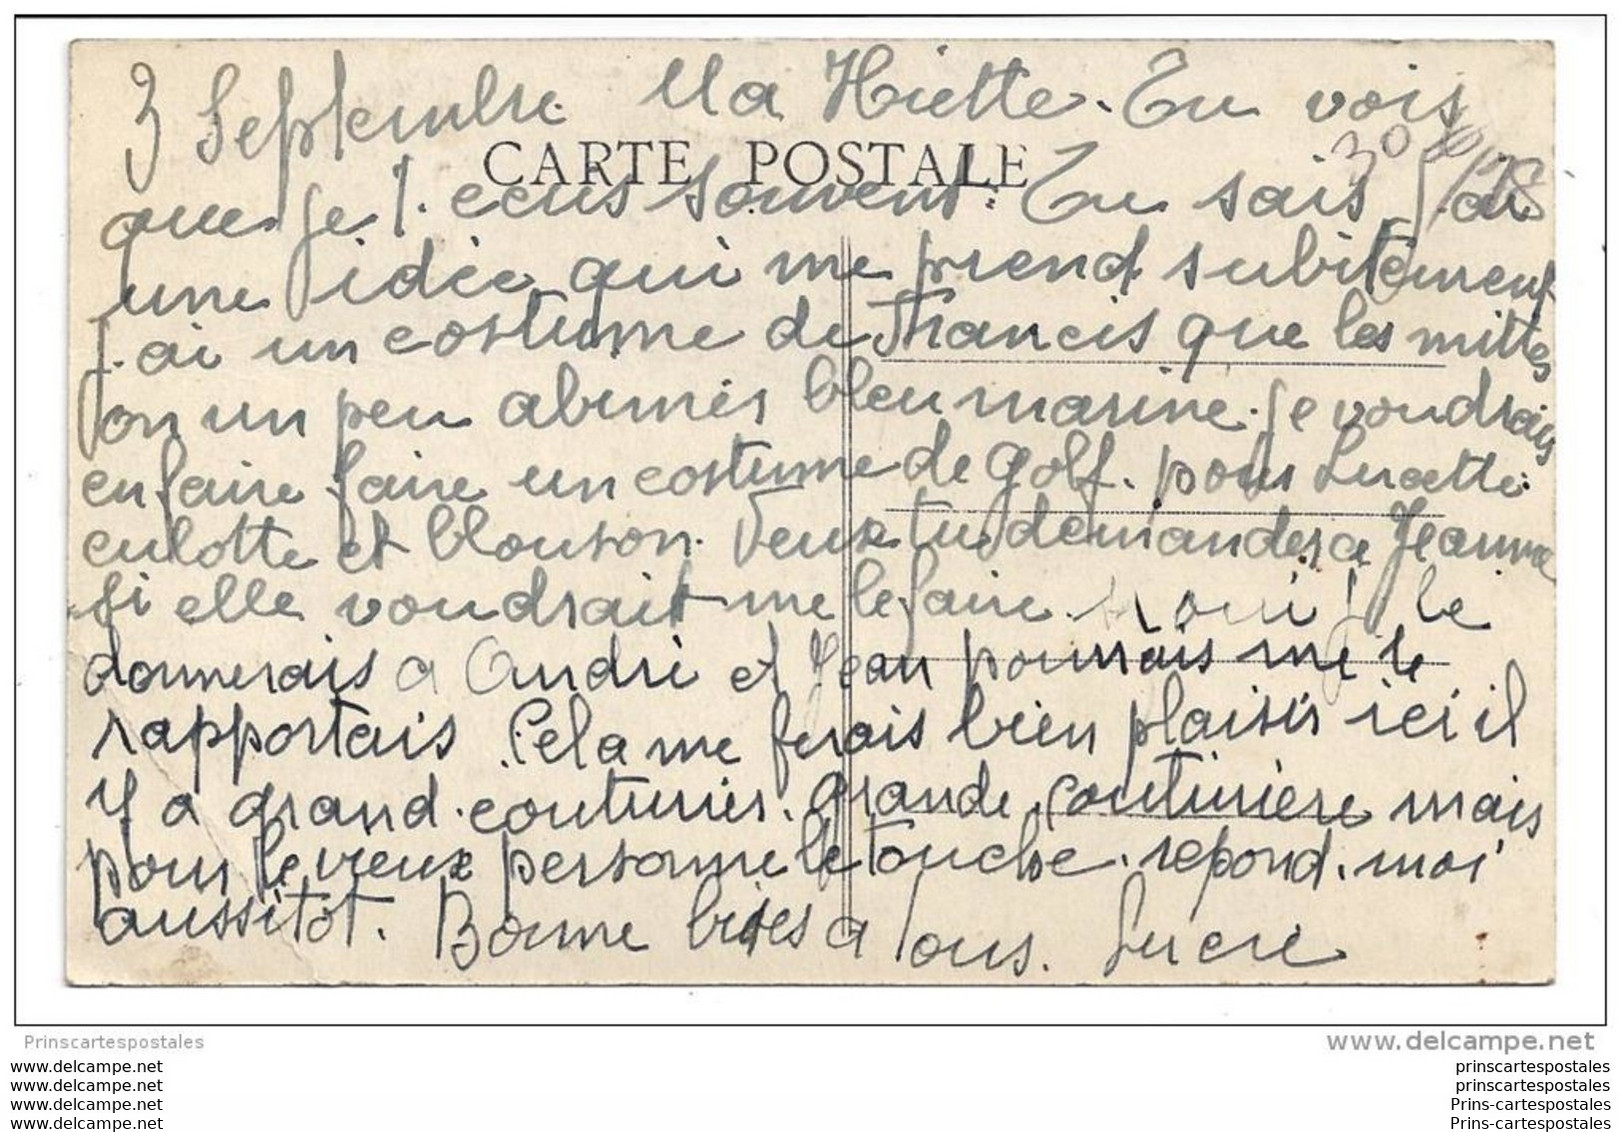 3 Septembre. Ma Hiette. Tu vois
CARTE POSTALE
que je t. ecris souvent. Tu sais J. ai
une idée qui me prend subitement
J. ai un costume de Francis que les mittes
on un peu abimés bleu marine. je voudrais
en faire faire un costume de golf. pour Lucette.
culotte et blouson. Veux tu demander a Jeanne
si elle voudrait me le faire. oui je le
donnerais a André et Jean pourrais me le
rapportais. Cela me ferais bien plaisir ici il
y a grand. couturier. grande couturière mais
pour le vieux personne le touche. repond. moi
aussitot. Bonne bises a Tous. Lucie
Prinscartespostales
www.delcampe.net
www.delcampe.net
www.delcampe.net
www.delcampe.net
www.delcampe.net
prinscartespostales
prinscartespostales
Prins-cartespostales
Prins-cartespostales